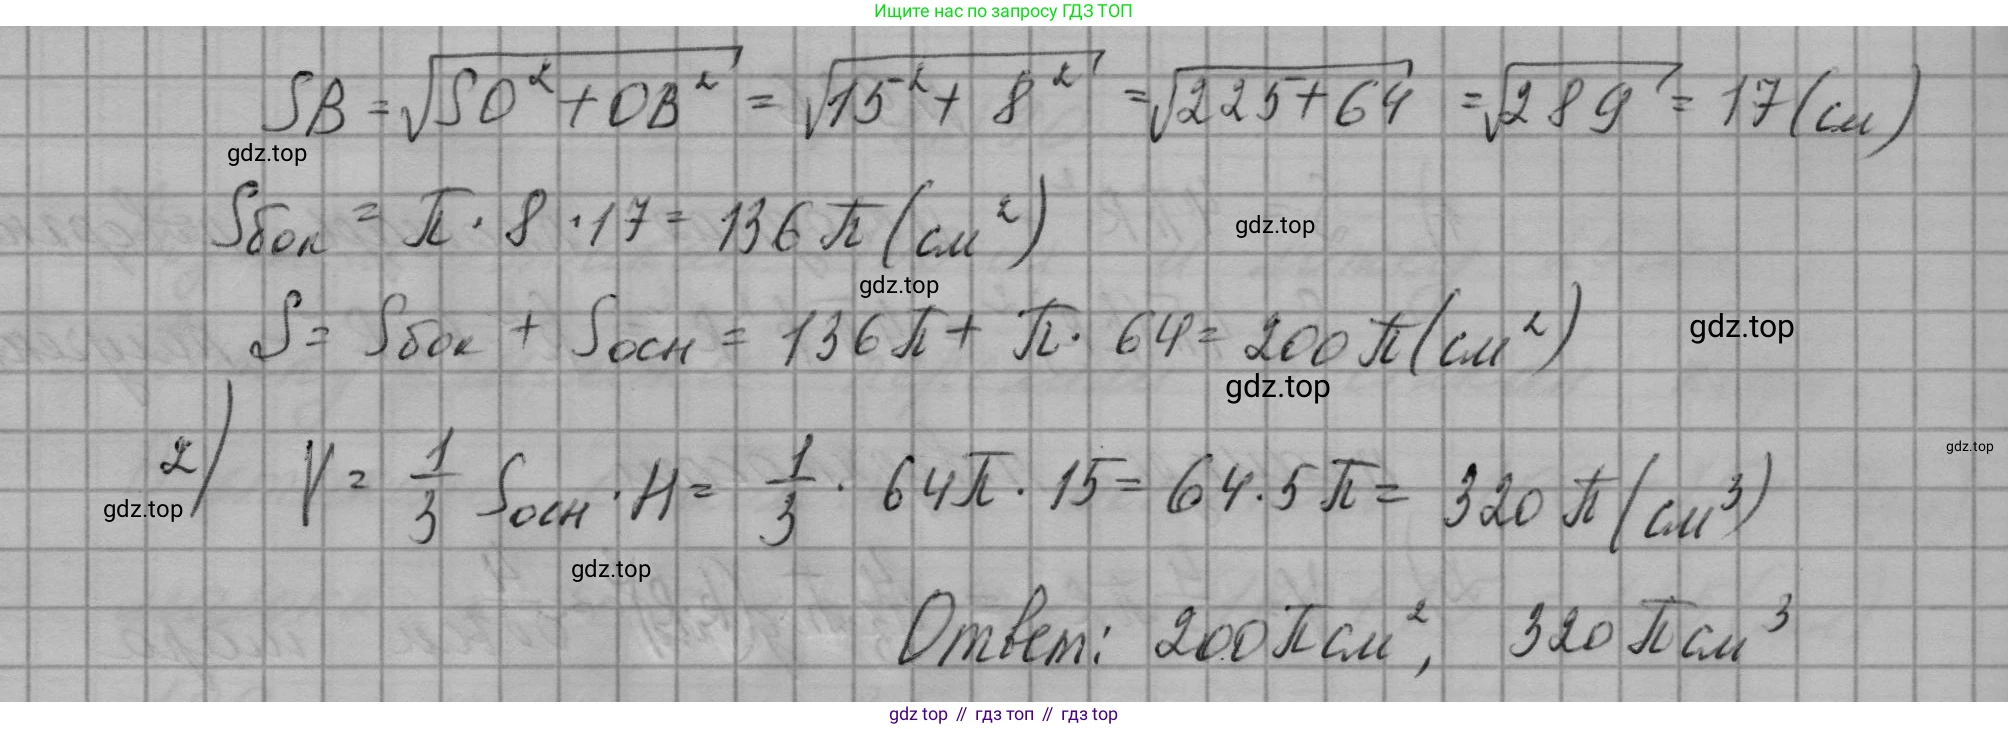 Ищите нас по запросу ГДЗ ТОП
SB = √(SO² + OB²) = √(15² + 8²) = √(225 + 64) = √289 = 17 (см)
gdz.top
Sбок = π · 8 · 17 = 136 π (см²)
gdz.top
gdz.top
S = Sбок + Sосн = 136 π + π · 64 = 200 π (см²)
gdz.top
gdz.top
2) V = 1/3 Sосн · H = 1/3 · 64 π · 15 = 64 · 5 π = 320 π (см³)
gdz.top
gdz.top
gdz.top
Ответ: 200 π см², 320 π см³
gdz top // гдз топ // гдз top